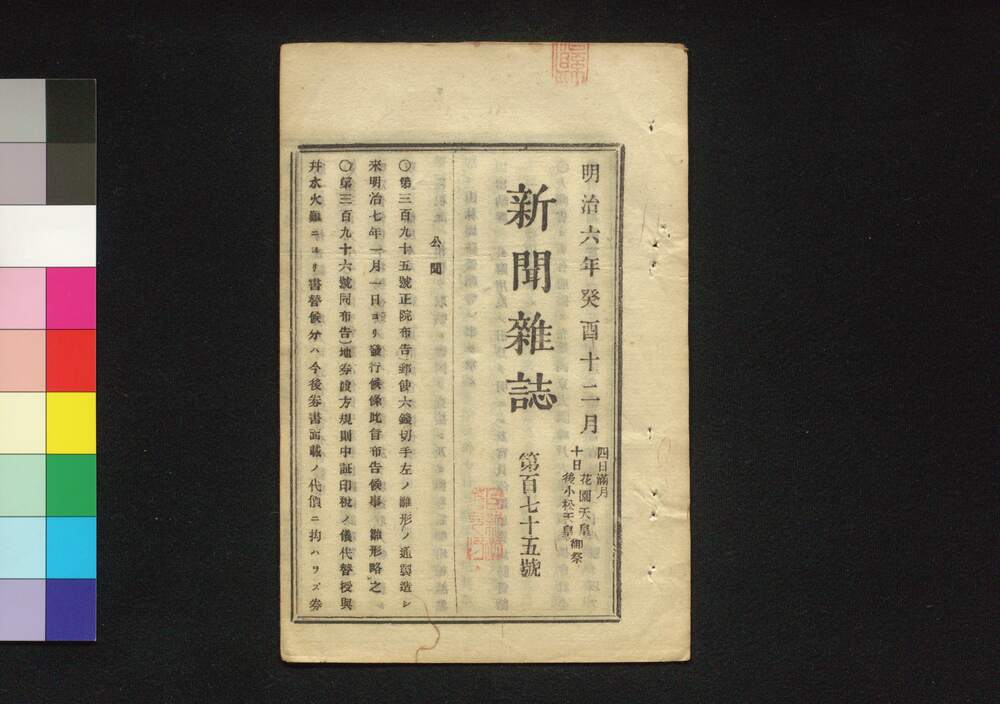 明治六年癸酉十二月
四日滿月
十日 花園天皇 後小松天皇 御祭
新聞雜誌
第百七十五號
公聞
〇第三百九十五號正院布告郵便六錢切手左ノ雛形ノ通製造シ
來明治七年一月一日ヨリ發行候條此旨布告候事 雛形略之
〇第三百九十六號同布告地券渡方規則中証印稅ノ儀代替授與
并水火難ニヨリ書替候分ハ今後券書面載ノ代價ニ拘ハラズ券